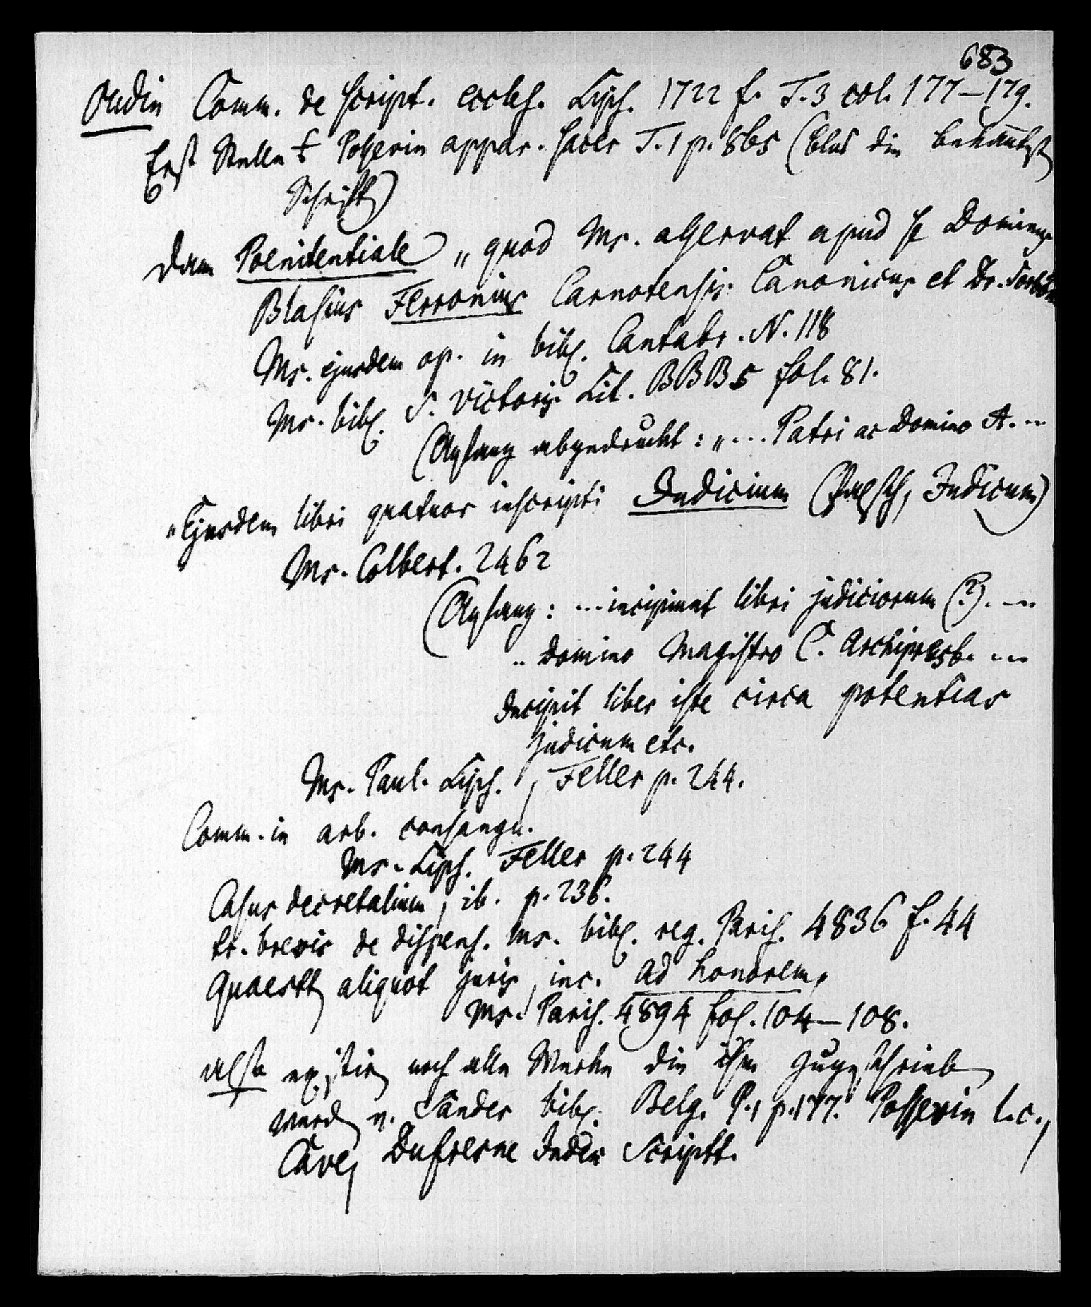 683
Oudin Comm. de script. eccles. Lips. 1722 f. T. 3 col. 177–179.
Erst Stelle Possevin appar. sacer T. 1 p. 865 (blos die bekannte
Schrift)
dann Poenitentiale „quod Ms. asservat apud se Dominus
Blasius Ferronius Carnotensis Canonicus et Dr. Sorbon
Ms. ejusdem op. in bibl. Cantabr. N. 118
Ms. bibl. S. Victoris Lit. BBB5 fol. 81.
(Anfang abgedruckt: „... Patri ac Domino A. ...
„Ejusdem libri quatuor inscripti Indicium (falsch, Judicum)
Ms. Colbert. 2462
(Anfang: ... incipiunt libri judiciorum (?). ...
.. Domino Magistro C. Archipresb. ...
Incipit liber iste circa potentias
judicum etc.
Ms. Paul. Lips., Feller p. 244.
Comm. in arb. consangu.
Ms. Lips. Feller p. 244
Casus decretalium, ib. p. 236.
tr. brevis de dispens. Ms. bibl. reg. Paris. 4836 f. 44
Quaestt aliquot juris, inc. ad honorem,
Ms. Paris. 4894 fol. 104–108.
also existir noch alle Werke die ihm zugeschrieb
werd v. Sander bibl. Belg. P. 1 p. 177. Possevin l. c.,
Cave, Dufresne Index Scriptt.